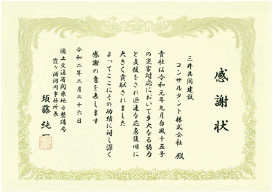 感謝状
三井共同建設
コンサルタント株式会社 殿
貴社は令和元年九月台風十五号
の災害対応において多大なる協力
と支援をされ迅速な応急復旧に
大きく貢献されました
よってここにその功績に対し深く
感謝の意を表します
令和二年二月二十六日
国土交通省関東地方整備局
須藤純一